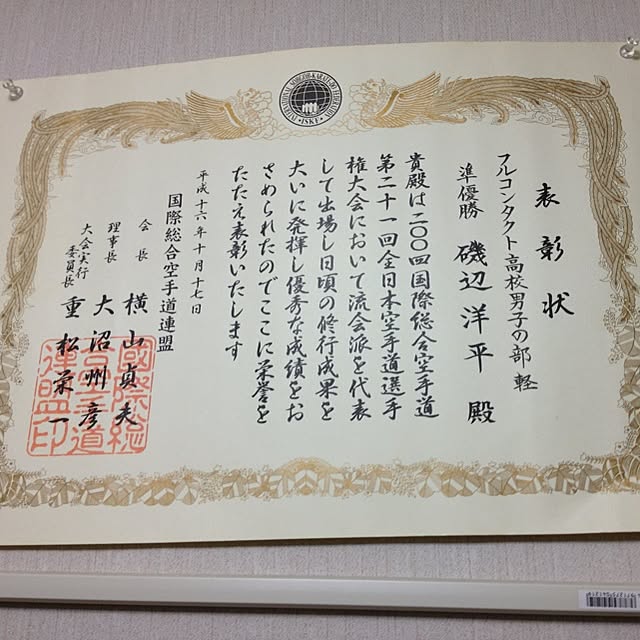 表彰状
フルコンタクト高校男子の部 軽
準優勝 磯辺洋平 殿
貴殿は二〇〇四国際総合空手道
第二十一回全日本空手道選手
権大会において流会派を代表
して出場し日頃の修行成果を
大いに発揮し優秀な成績をお
さめられたのでここに栄誉を
たたえ表彰いたします
平成十六年十月十七日
国際総合空手道連盟
会長 横山貞夫
理事長 大沼州彦
大会実行委員長 重松栄一
國際総
合空手道
連盟印
ISKF